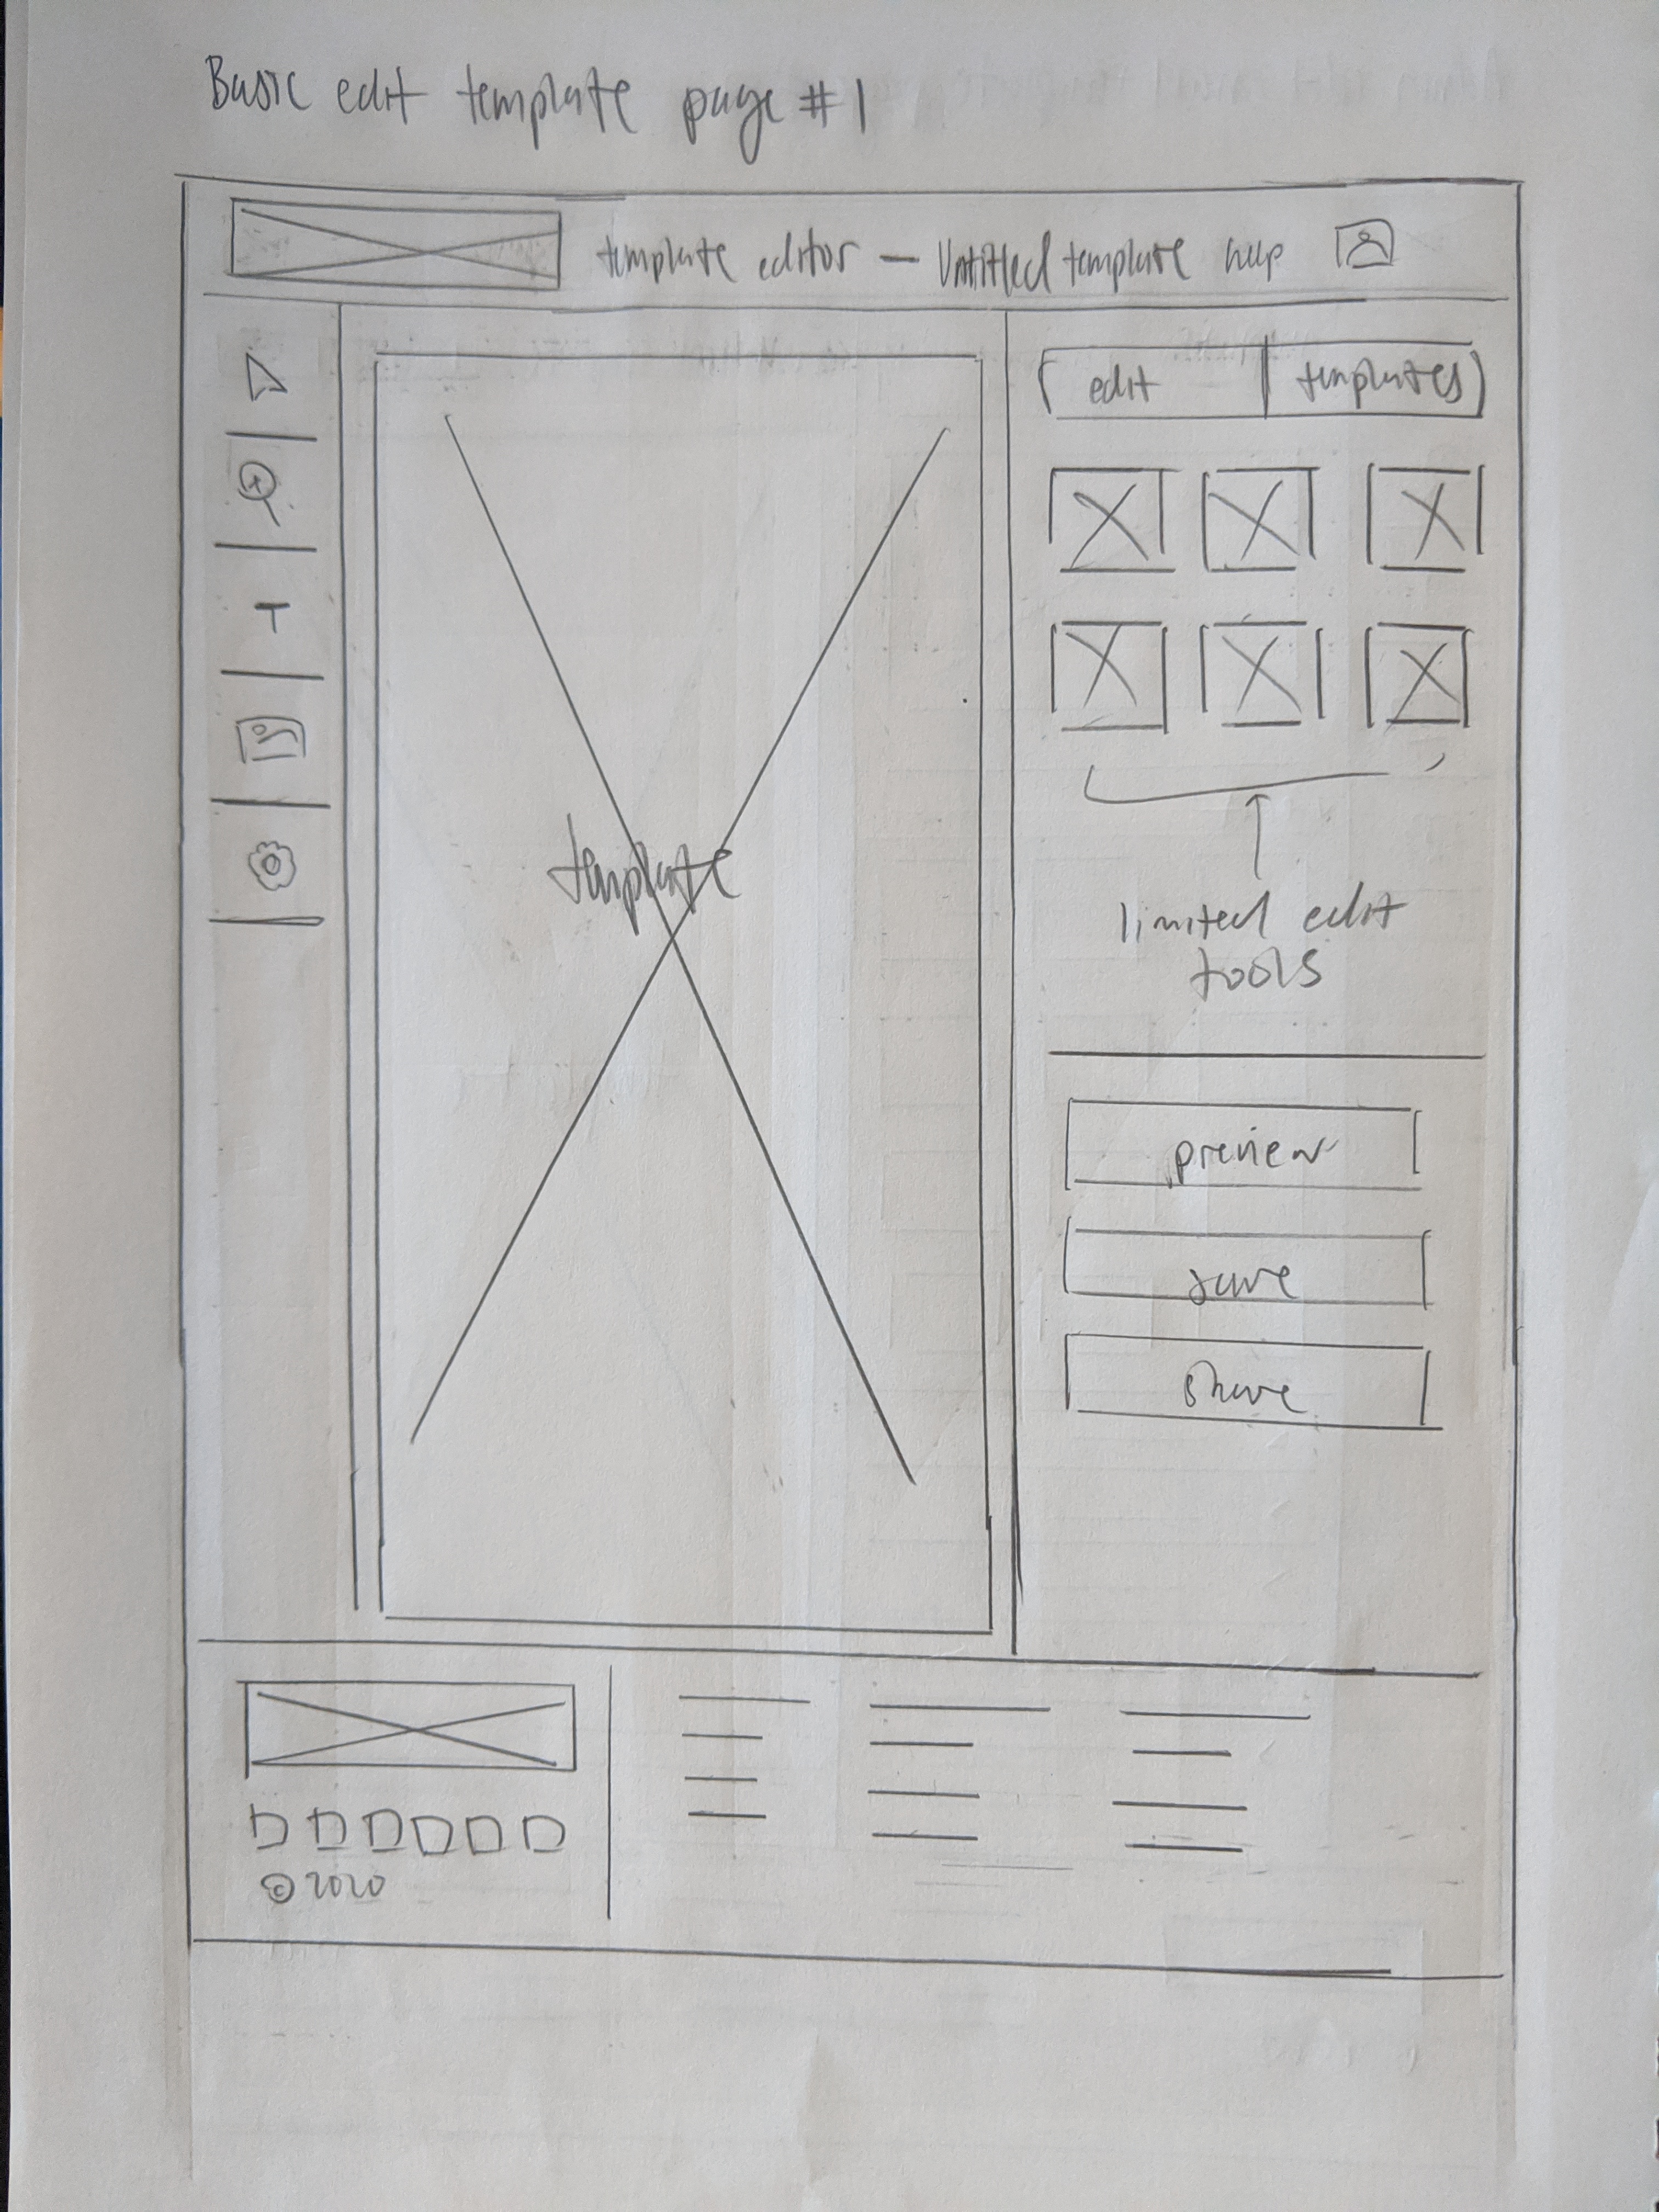 Basic edit template page #1
template editor — Untitled template help
edit templates
T
template
limited edit
tools
preview
save
share
© 2020